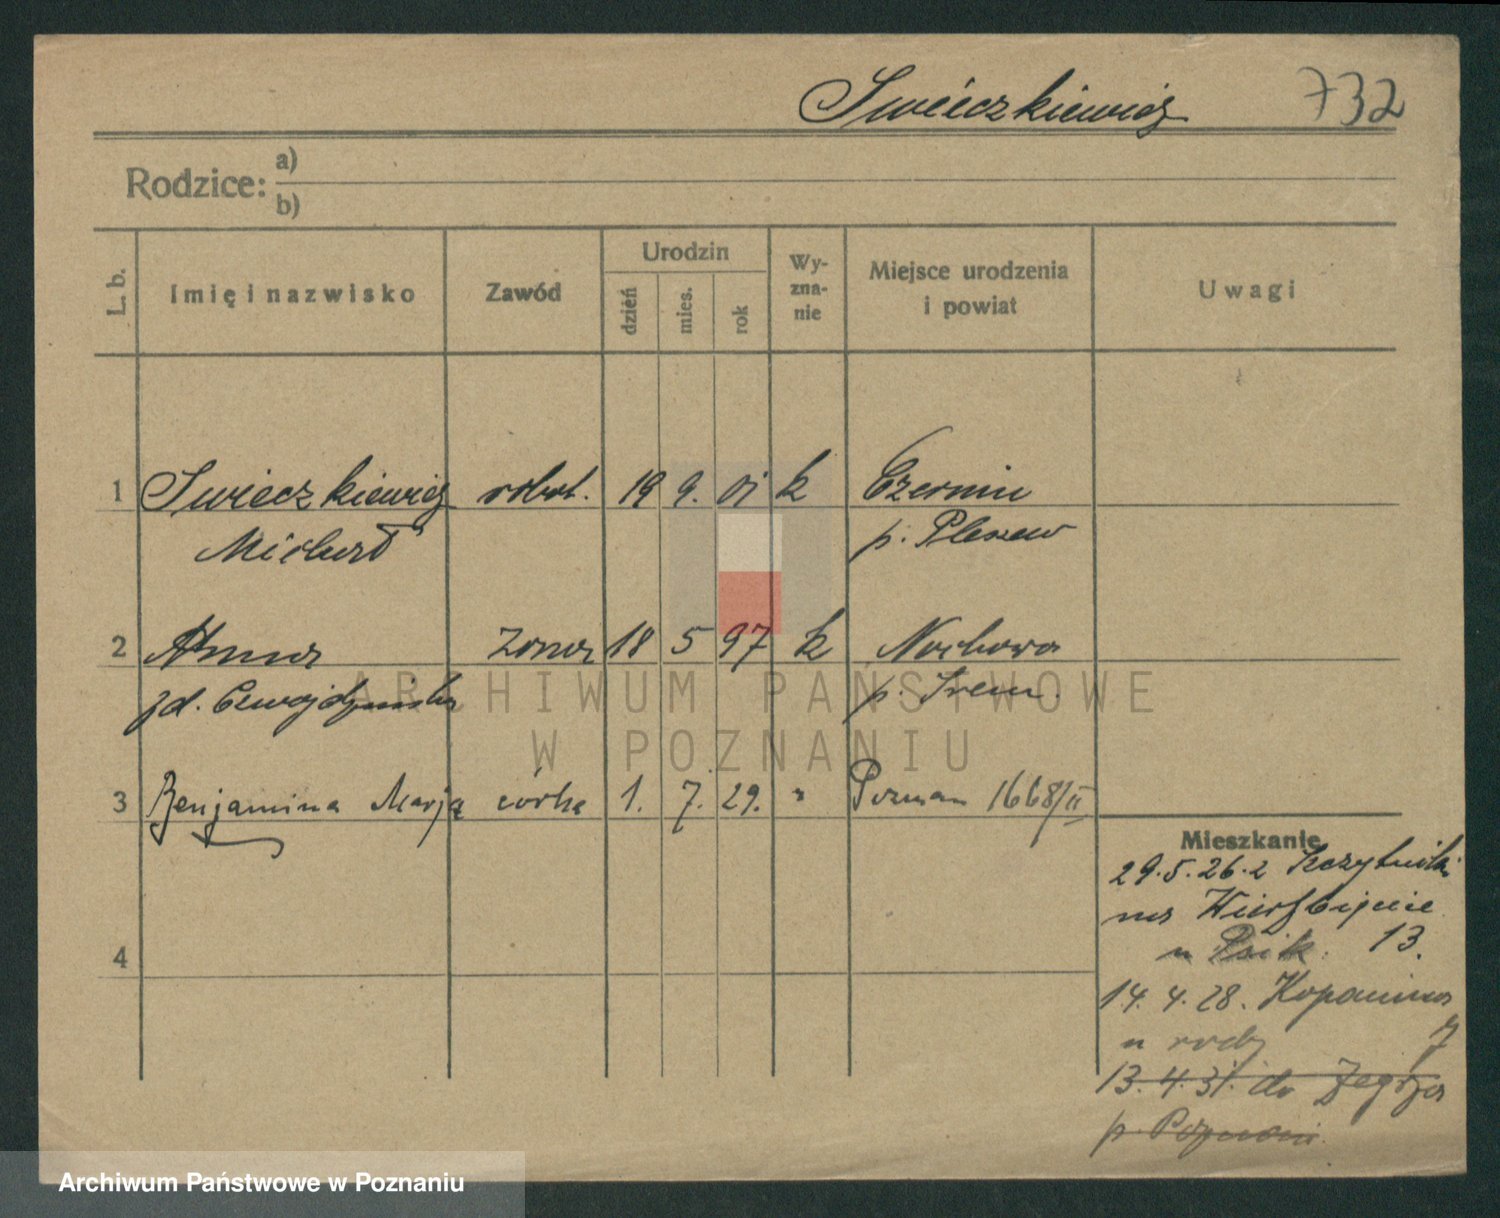 Swiéczkiewicz 732
Rodzice: a)
b)
L. b.
Imię i nazwisko
Zawód
Urodzin
dzień
mies.
rok
Wy-
zna-
nie
Miejsce urodzenia
i powiat
Uwagi
1 Swieczkiewicz robot. 19 9. 01 k Czermin
Michał p. Pleszew
2 Anna żona 18 5 97 k Nochowo
zd. Czwojdzinska p. Srem.
3 Benjamina Marja córka 1. 7. 29. " Poznan 1668/II
Mieszkanie
29.5.26. z
na Wierzbięcice
u 13.
14. 4. 28. Kopanina
u rodz 7
4
13. 4. 31. do Zegrza
p. Poznani
ARCHIWUM PAŃSTWOWE
W POZNANIU
Archiwum Państwowe w Poznaniu